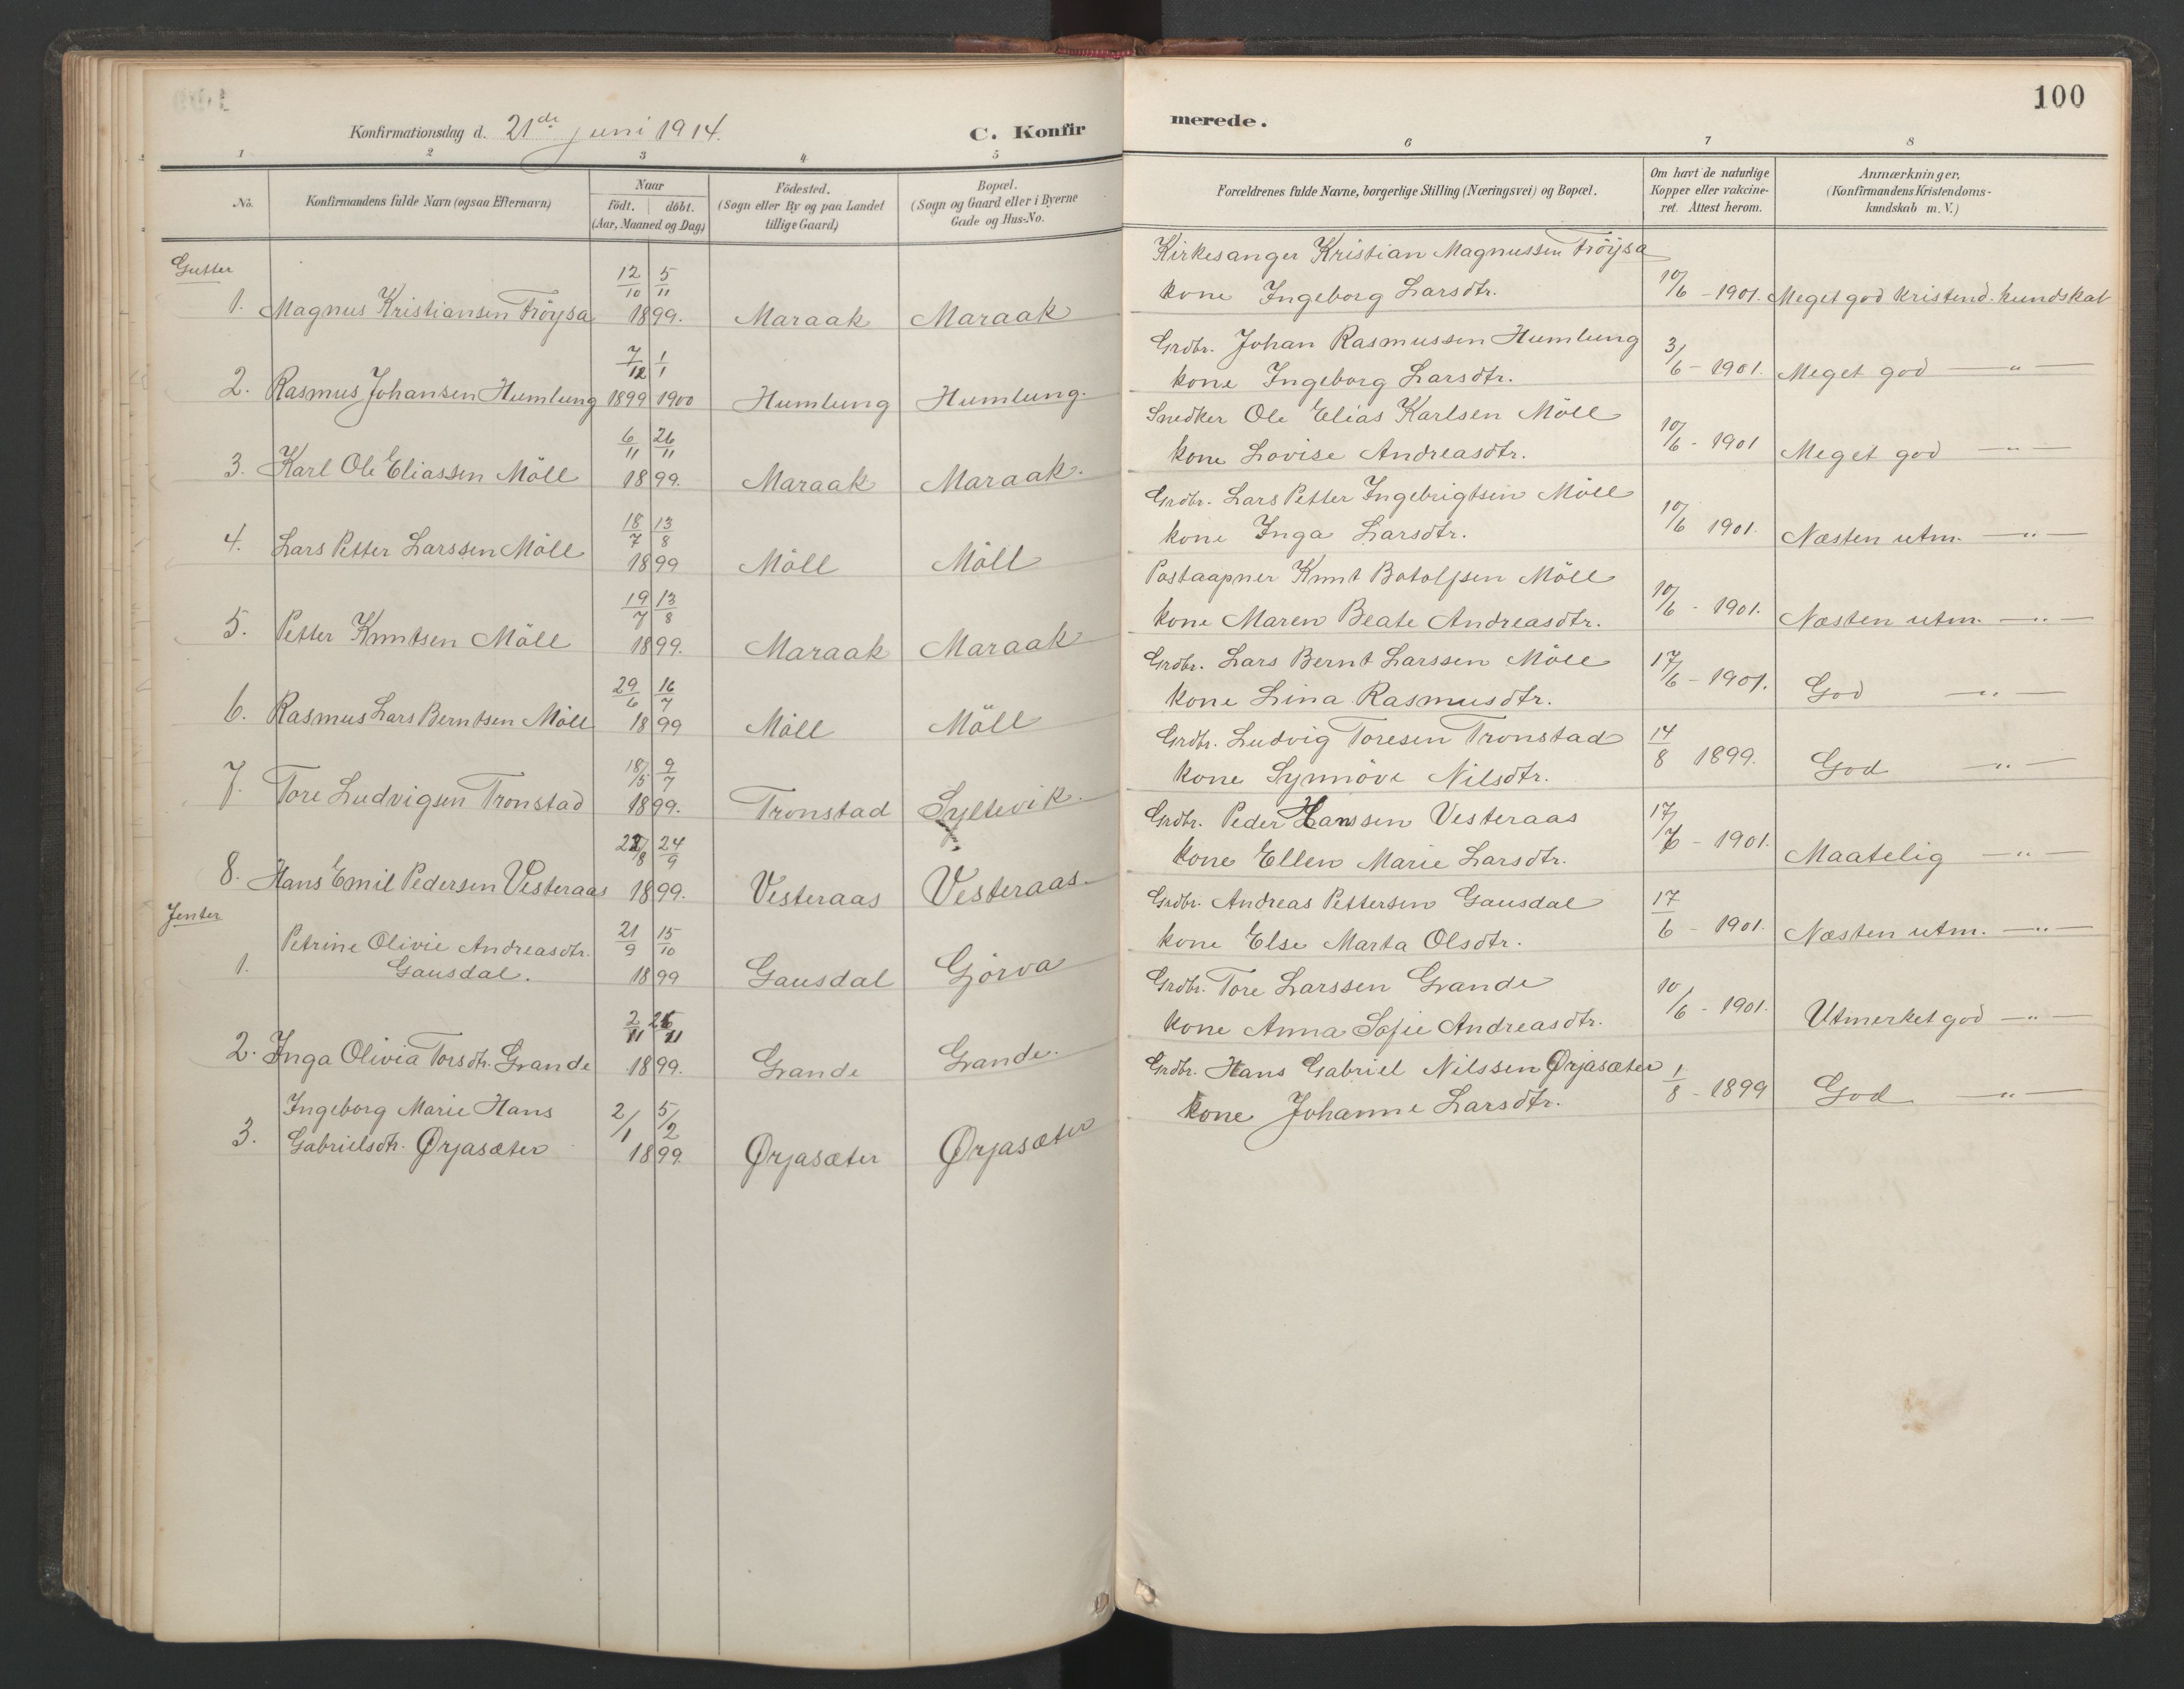 100
Konfirmationsdag d. 21de juni 1914.
C. Konfirmerede.
1 2 3 4 5 6 7 8
No.
Konfirmandens fulde Navn (ogsaa Efternavn)
Naar
Födt. döbt.
(Aar, Maaned og Dag)
Födested.
(Sogn eller By og paa Landet
tillige Gaard)
Bopæl.
(Sogn og Gaard eller i Byerne
Gade og Hus-No.
Forældrenes fulde Navne, borgerlige Stilling (Næringsvei) og Bopæl.
Om havt de naturlige
Kopper eller vakcine-
ret. Attest herom.
Anmærkninger.
(Konfirmandens Kristendoms-
kundskab m. V.)
Gutter
1. Magnus Kristiansen Fröysa 12/10 5/11 1899. Maraak Maraak
Kirkesanger Kristian Magnussen Fröysa
kone Ingeborg Larsdtr. 10/6 - 1901. Meget god kristend. kundskab
2. Rasmus Johansen Humlung 7/12 1899 1/1 1900 Humlung Humlung.
Grdbr. Johan Rasmussen Humlung
kone Ingeborg Larsdtr. 3/6 - 1901. Meget god — " —
3. Karl Ole Eliassen Möll 6/11 26/11 1899. Maraak Maraak.
Snedker Ole Elias Karlsen Möll
kone Lovise Andreasdtr. 10/6 - 1901 Meget god — " —
4. Lars Petter Larssen Möll 18/7 13/8 1899 Möll Möll
Grdbr. Lars Petter Ingebrigtsen Möll
kone Inga Larsdtr. 10/6 1901. Næsten utm. — " —
5. Petter Knutsen Möll 19/7 13/8 1899. Maraak Maraak
Postaapner Knut Botolfsen Möll
kone Maren Beate Andreasdtr. 10/6 - 1901. Næsten utm. — " —
6. Rasmus Lars Berntsen Möll 29/6 16/7 1899 Möll Möll
Grdbr. Lars Bernt Larssen Möll
kone Lina Rasmusdtr. 17/6 - 1901. God — " —
7. Tore Ludvigsen Tronstad 18/5 9/7 1899. Tronstad Syltevik.
Grdbr. Ludvig Toresen Tronstad
kone Synnöve Nilsdtr. 14/8 1899. God — " —
8. Hans Emil Pedersen Vesteraas /8 24/9 1899. Vesteraas Vesteraas.
Grdbr. Peder Hanssen Vesteraas
kone Ellen Marie Larsdtr. 17/6 - 1901. Maatelig — " —
Jenter
1. Petrine Olivie Andreasdtr.
Gausdal. 21/9 15/10 1899 Gausdal Gjörva
Grdbr. Andreas Pettersen Gausdal
kone Else Marta Olsdtr. 17/6 - 1901. Næsten utm. — " —
2. Inga Olivia Torsdtr. Grande 2/11 26/11 1899. Grande Grande.
Grdbr. Tore Larssen Grande
kone Anna Sofie Andreasdtr. 10/6 - 1901. Utmerket god — " —
3. Ingeborg Marie Hans
Gabrielsdtr. Ørjasæter 2/1 5/2 1899. Ørjasæter Ørjasæter
Grdbr. Hans Gabriel Nilssen Ørjasæter
kone Johanne Larsdtr. 1/8 - 1899 God — " —